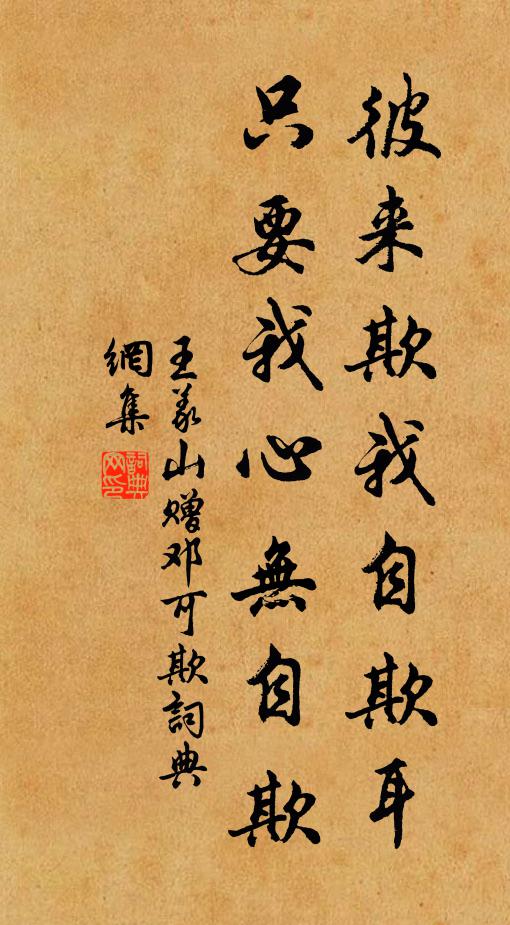 彼来欺我自欺耳
只要我心無自欺
王义山赠邓可欺詞典
網集
詞典